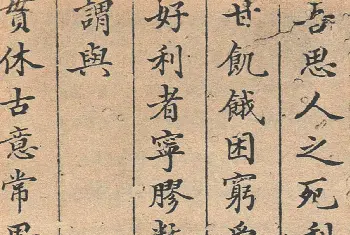 吾思人之死利
甘飢餓困窮
好利者寧膠
謂與
貫休古意常思